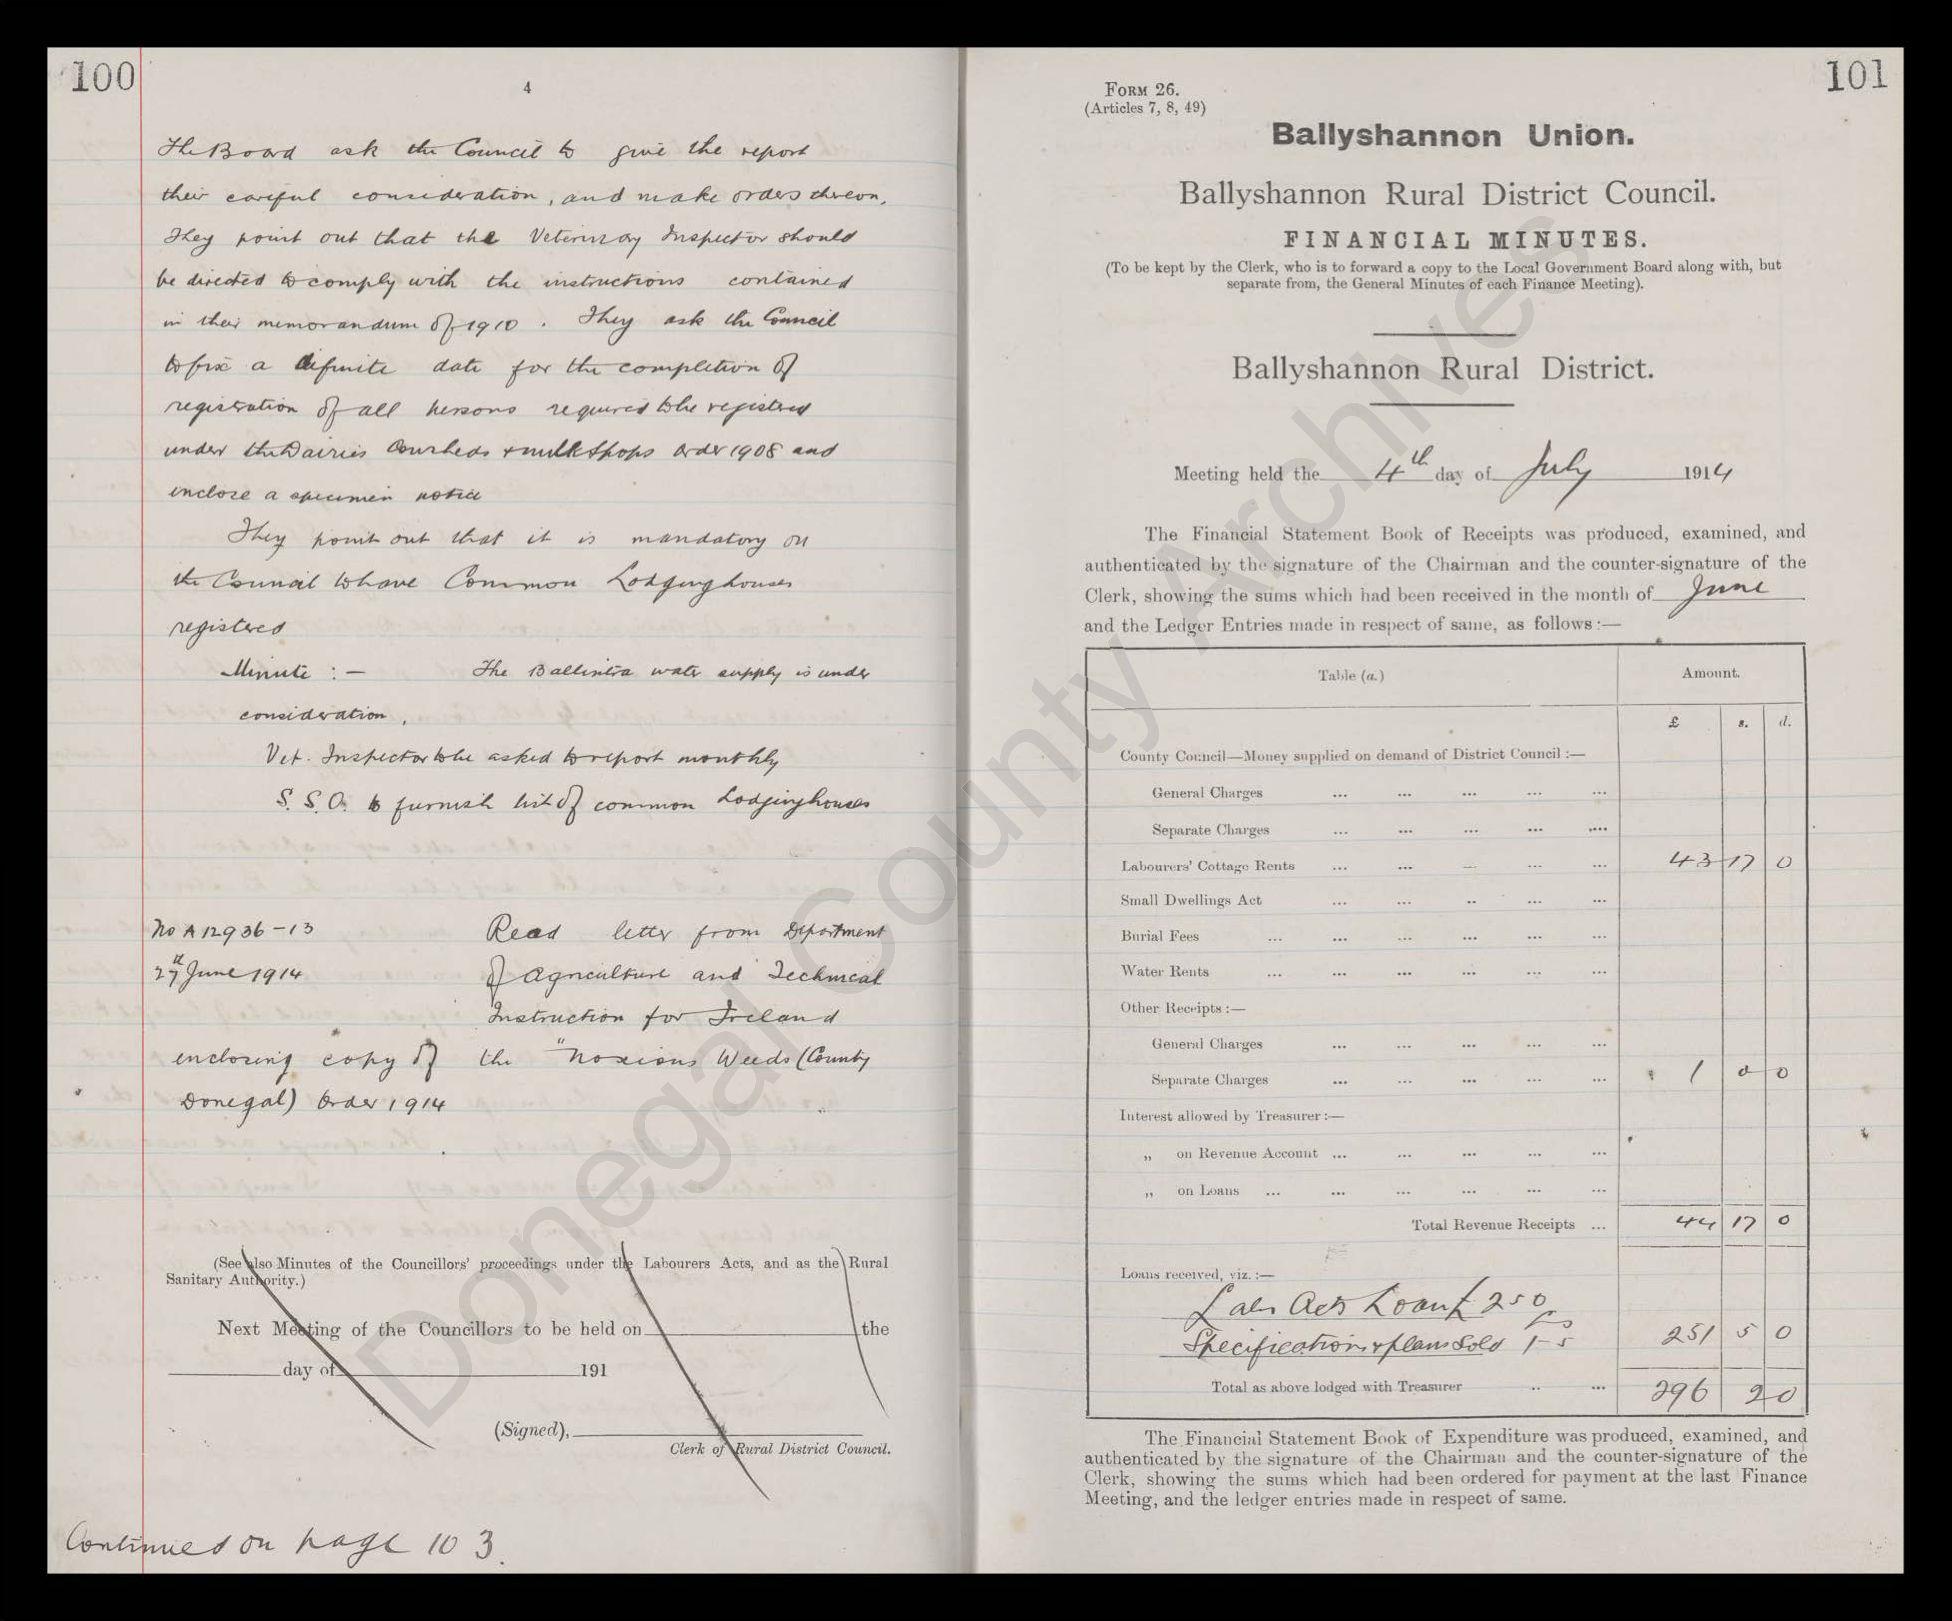 100
4
The Board ask the Council to give the report
their careful consideration, and make orders thereon.
They point out that the Veterinary Inspector should
be directed to comply with the instructions contained
in their memorandum of 1910. They ask the Council
to fix a definite date for the completion of
registration of all persons required to be registered
under the Dairies Cowsheds & milkshops Order 1908 and
inclose a specimen notice
They point out that it is mandatory on
the Council to have Common Lodginghouses
registered
Minute :— The Ballintra water supply is under
consideration.
Vet. Inspector to be asked to report monthly
S. S. O. to furnish list of common Lodginghouses
No A 12936-13 Read letter from Department
27th June 1914 of Agriculture and Technical
Instruction for Ireland
enclosing copy of the "Noxious Weeds (County
Donegal) Order 1914
(See also Minutes of the Councillors' proceedings under the Labourers Acts, and as the Rural
Sanitary Authority.)
Next Meeting of the Councillors to be held on the
day of 191
(Signed),
Clerk of Rural District Council.
Continued on page 103.
101
FORM 26.
(Articles 7, 8, 49)
Ballyshannon Union.
Ballyshannon Rural District Council.
FINANCIAL MINUTES.
(To be kept by the Clerk, who is to forward a copy to the Local Government Board along with, but
separate from, the General Minutes of each Finance Meeting).
Ballyshannon Rural District.
Meeting held the 4th day of July 1914
The Financial Statement Book of Receipts was produced, examined, and
authenticated by the signature of the Chairman and the counter-signature of the
Clerk, showing the sums which had been received in the month of June
and the Ledger Entries made in respect of same, as follows :—
Table (a.) Amount.
£ s. d.
County Council—Money supplied on demand of District Council :—
General Charges ... ... ... ... ...
Separate Charges ... ... ... ... ...
Labourers' Cottage Rents ... ... ... ... ... 43 17 0
Small Dwellings Act ... ... ... ... ...
Burial Fees ... ... ... ... ... ...
Water Rents ... ... ... ... ... ...
Other Receipts :—
General Charges ... ... ... ... ...
Separate Charges ... ... ... ... ... 1 0 0
Interest allowed by Treasurer :—
„ on Revenue Account ... ... ... ... ...
„ on Loans ... ... ... ... ... ...
Total Revenue Receipts ... 44 17 0
Loans received, viz. :—
Labr Acts Loan £250
Specification & plans sold 1-5 251 5 0
Total as above lodged with Treasurer ... ... 296 2 0
The Financial Statement Book of Expenditure was produced, examined, and
authenticated by the signature of the Chairman and the counter-signature of the
Clerk, showing the sums which had been ordered for payment at the last Finance
Meeting, and the ledger entries made in respect of same.
Donegal County Archives